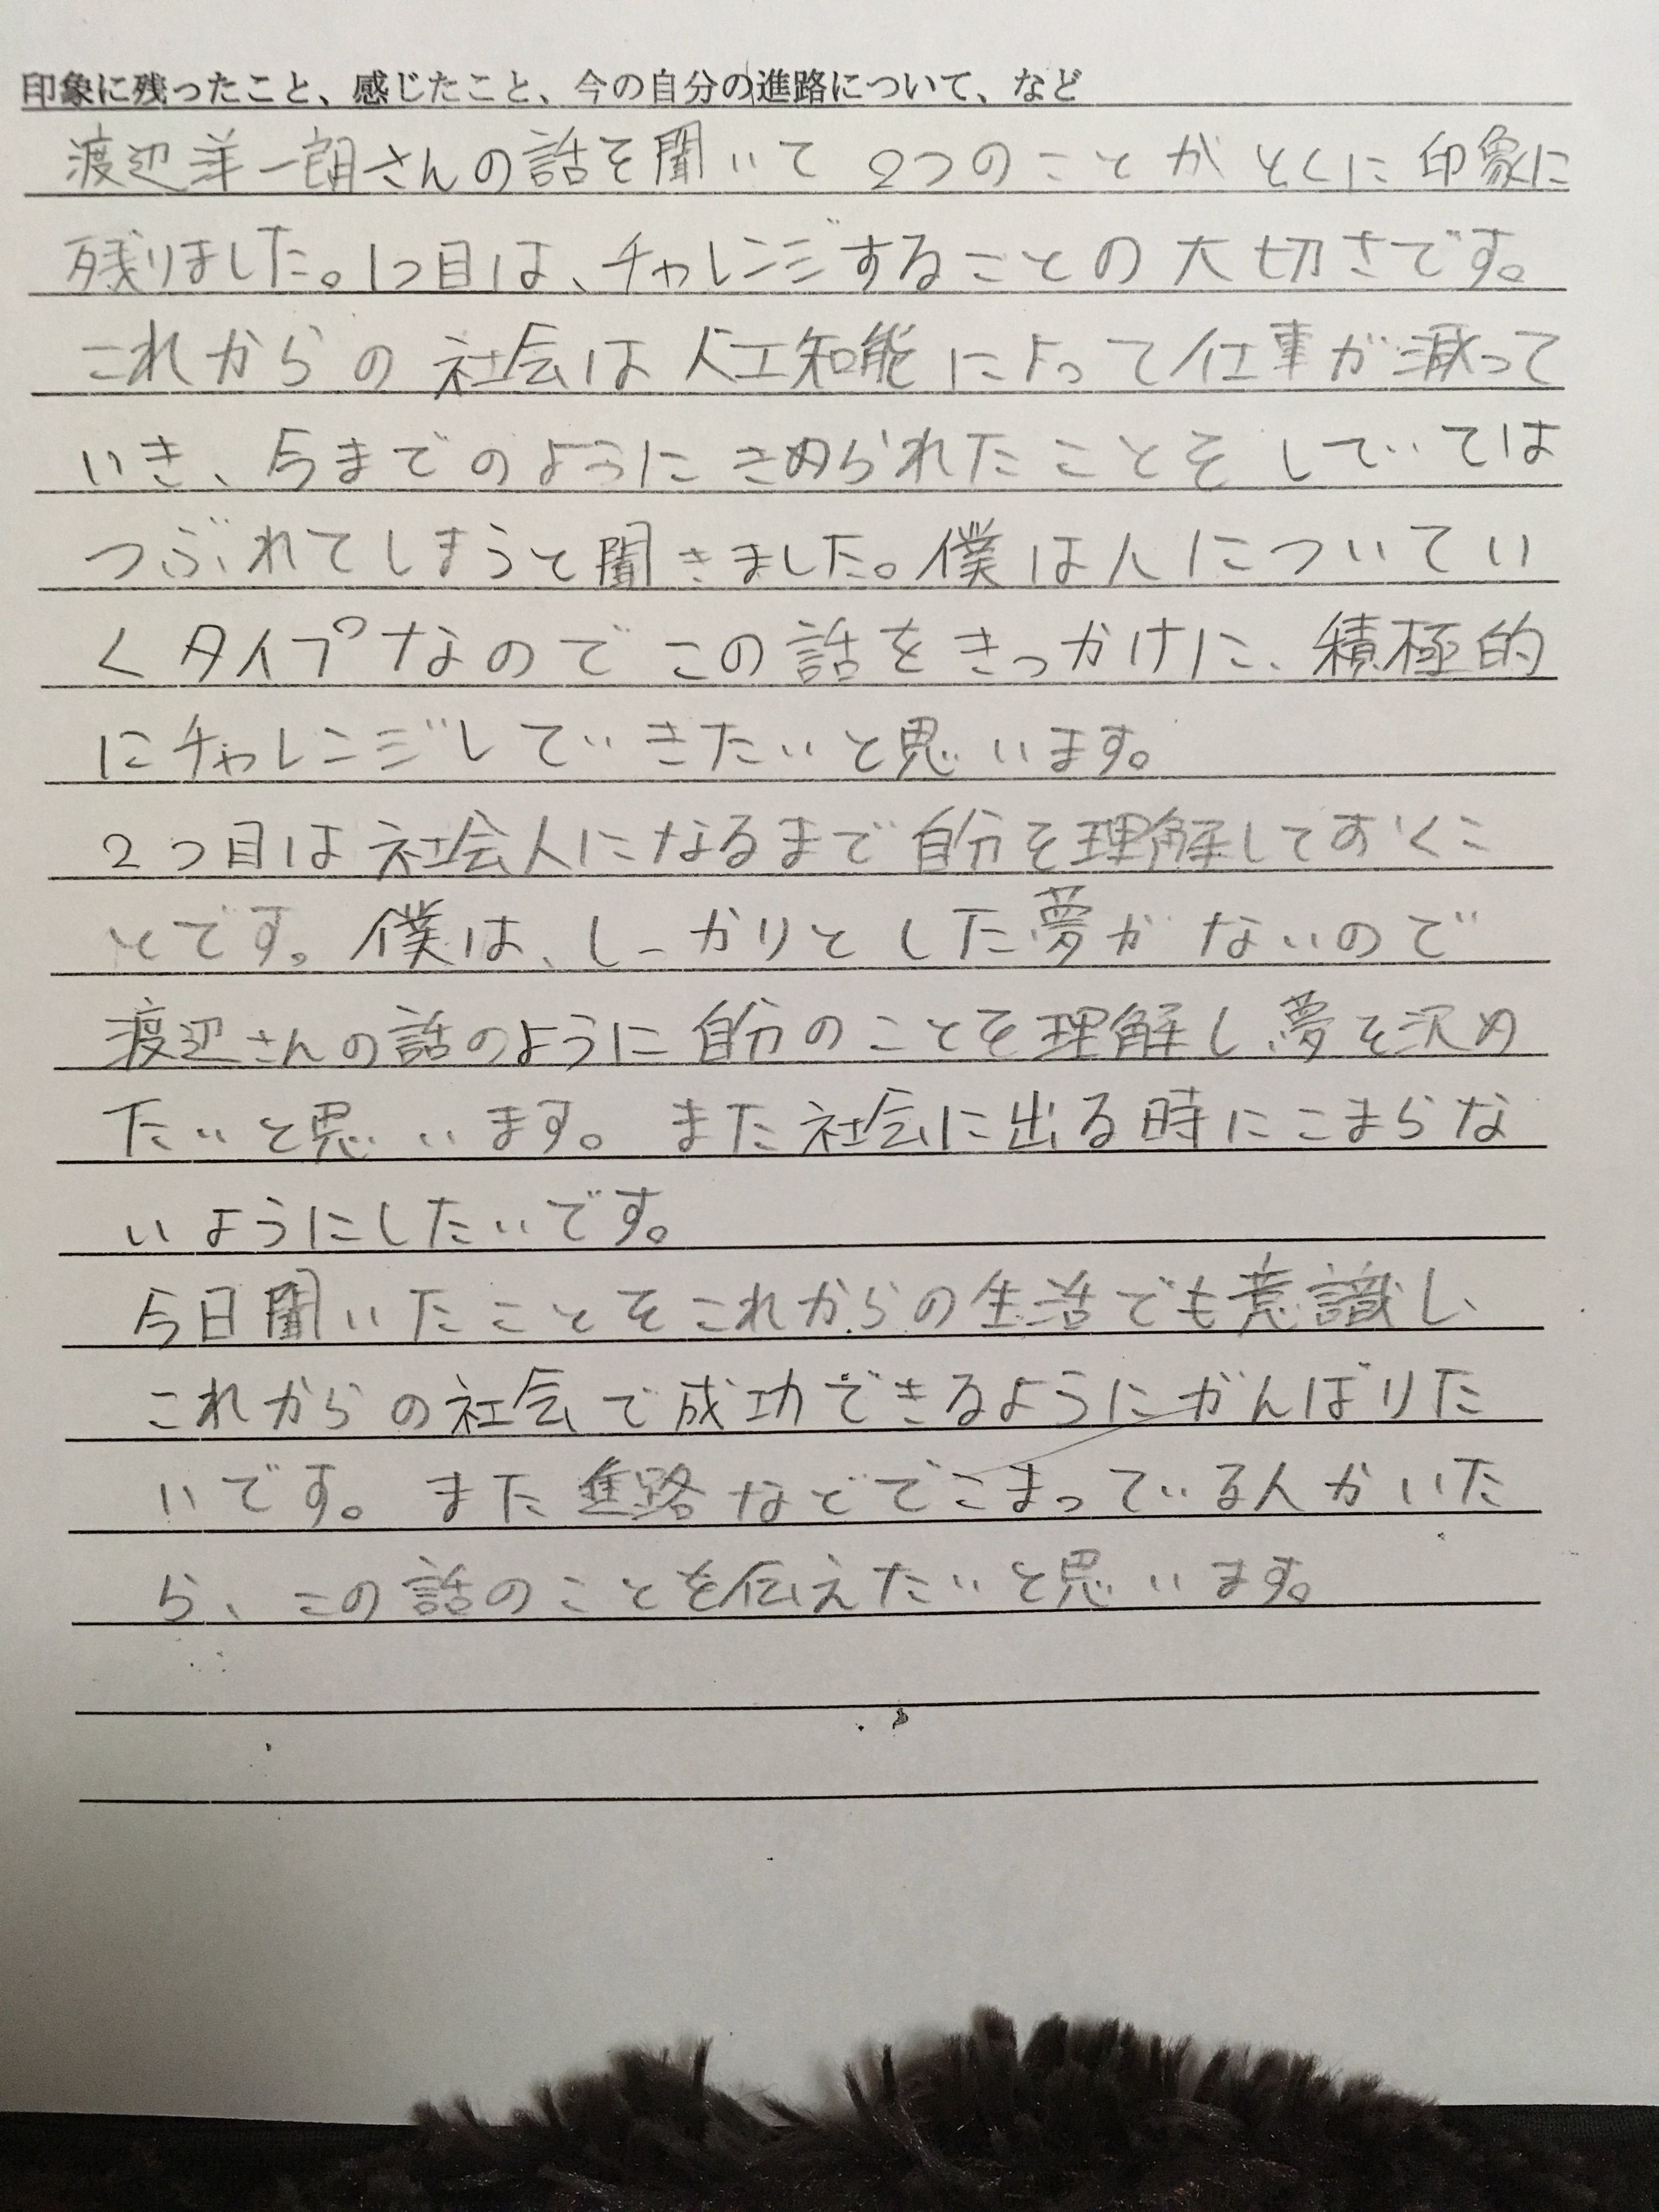 印象に残ったこと、感じたこと、今の自分の進路について、など
渡辺洋一朗さんの話を聞いて2つのことがとくに印象に
残りました。1つ目は、チャレンジすることの大切さです。
これからの社会は人工知能によって仕事が減って
いき、今までのようにきめられたことをしていては
つぶれてしまうと聞きました。僕は人についてい
くタイプなのでこの話をきっかけに、積極的
にチャレンジしていきたいと思います。
2つ目は社会人になるまで自分を理解しておくこ
とです。僕は、しっかりとした夢がないので
渡辺さんの話のように自分のことを理解し夢を決め
たいと思います。また社会に出る時にこまらな
いようにしたいです。
今日聞いたことをこれからの生活でも意識し、
これからの社会で成功できるようにがんばりた
いです。また進路などでこまっている人がいた
ら、この話のことを伝えたいと思います。